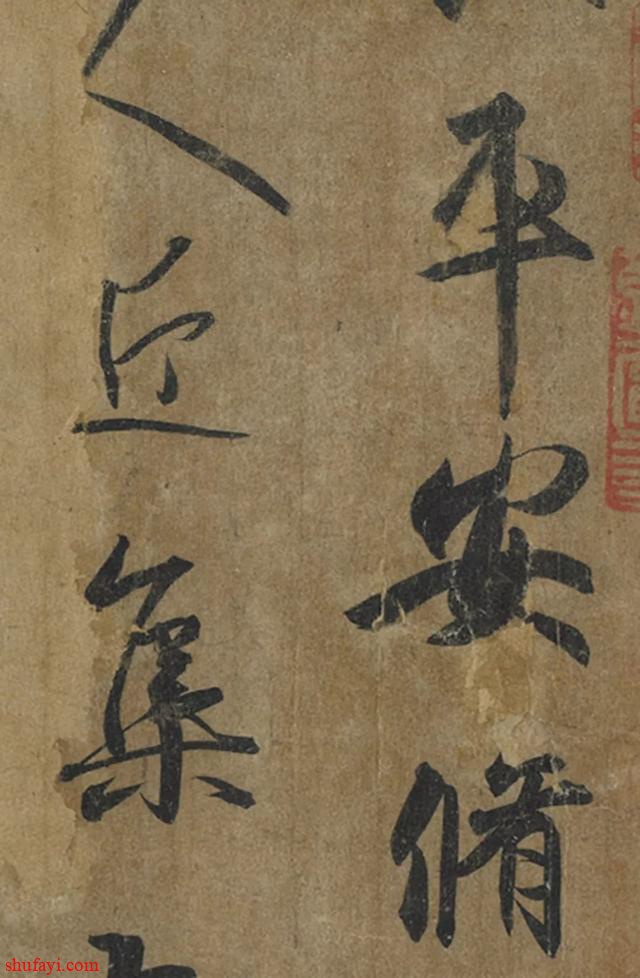 平安脩
人近集
shufayi.com